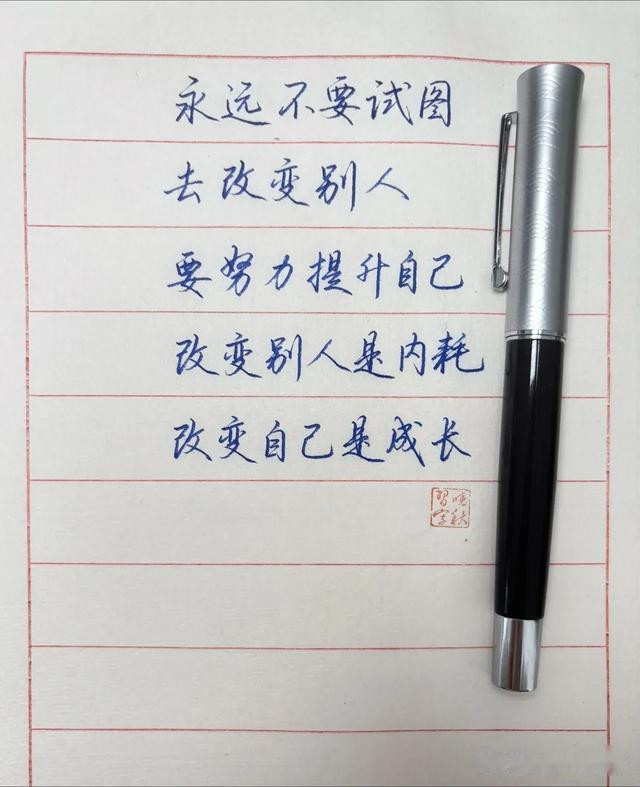 永远不要试图
去改变别人
要努力提升自己
改变别人是内耗
改变自己是成长
晚秋
习字